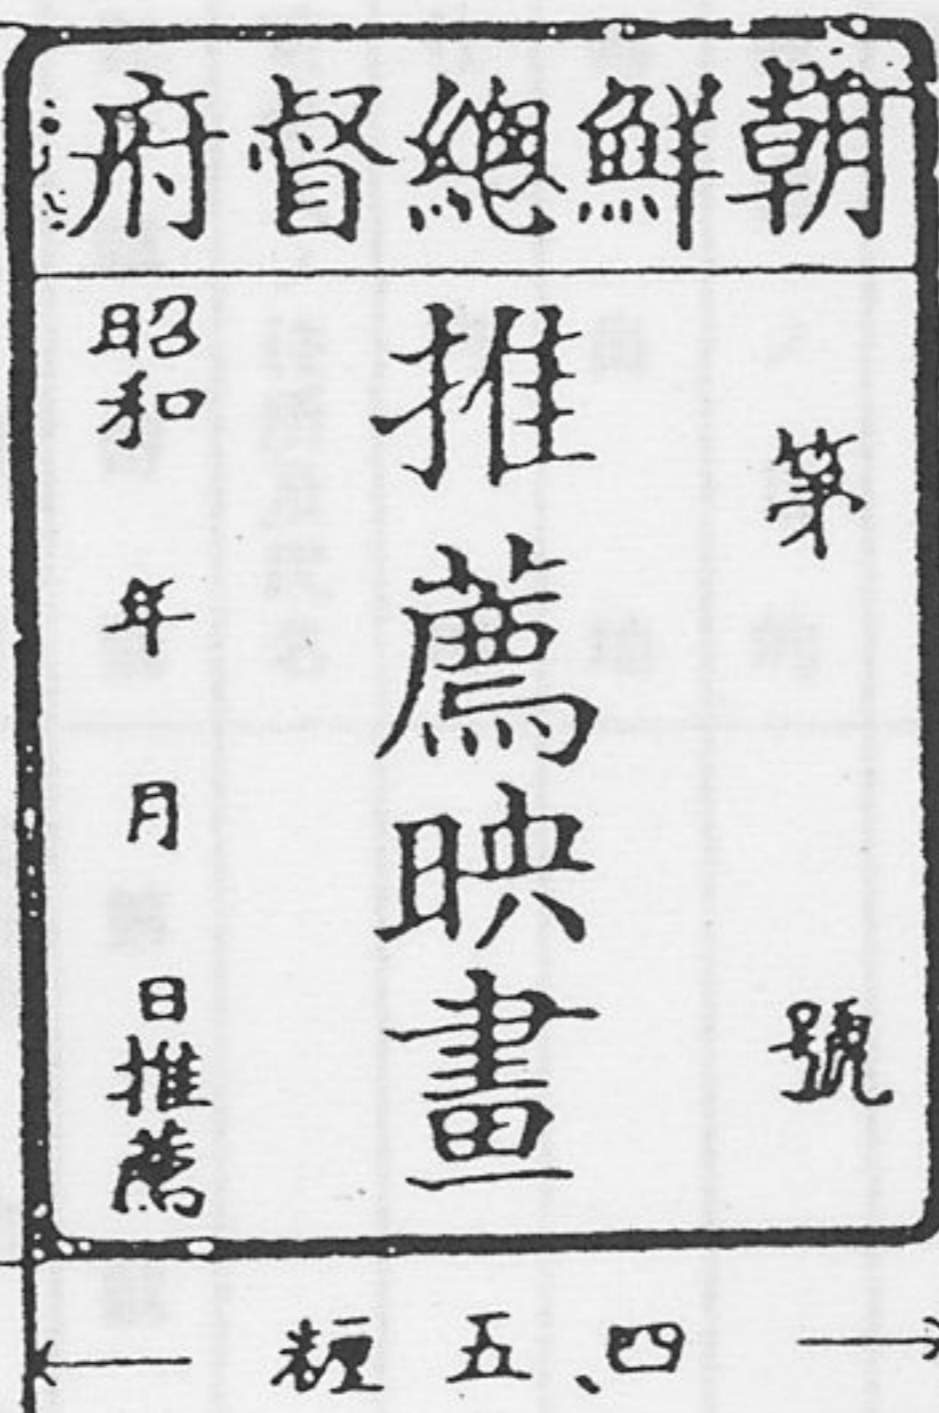 朝鮮總督府
第 號
推薦映畫
昭和 年 月 日推薦
四、五糎